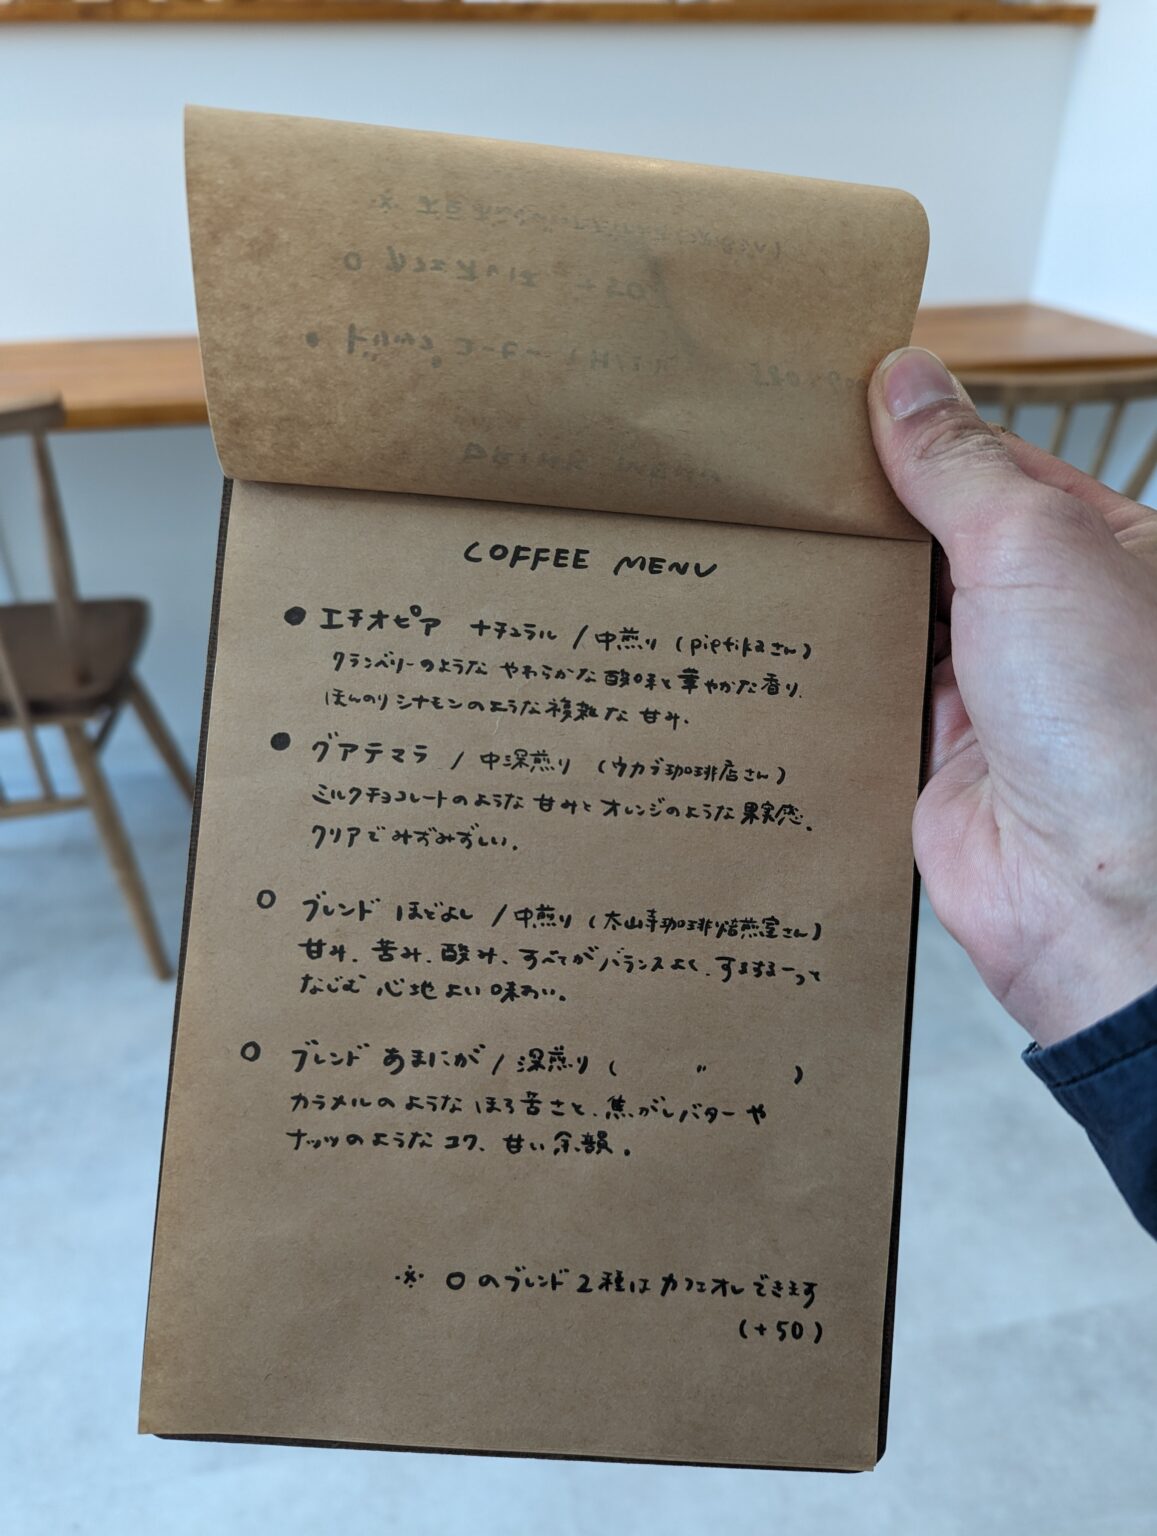 COFFEE MENU
● エチオピア ナチュラル / 中煎り (pietikaさん)
クランベリーのような やわらかな 酸味と 華やかな香り.
ほんのり シナモンのような 複雑な 甘み.
● グアテマラ / 中深煎り (ウカブ珈琲店さん)
ミルクチョコレートのような 甘みと オレンジのような 果実感.
クリアで みずみずしい.
○ ブレンド ほどよし / 中煎り (太山寺珈琲焙煎室さん)
甘み、苦み、酸み、すべてが バランスよく、するするーっと
なじむ 心地よい 味わい。
○ ブレンド あまにが / 深煎り ( 〃 )
カラメルのような ほろ苦さと、焦がしバターや
ナッツのような コク、甘い 余韻。
※ ○のブレンド2種は カフェオレできます
(+50)